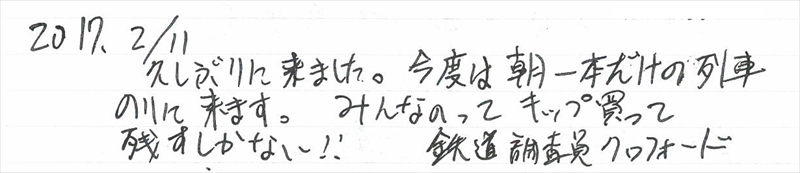 2017. 2/11
久しぶりに来ました。今度は朝一本だけの列車
のりに来ます。 みんなのって キップ買って
残すしかない!! 鉄道調査員クロフォード